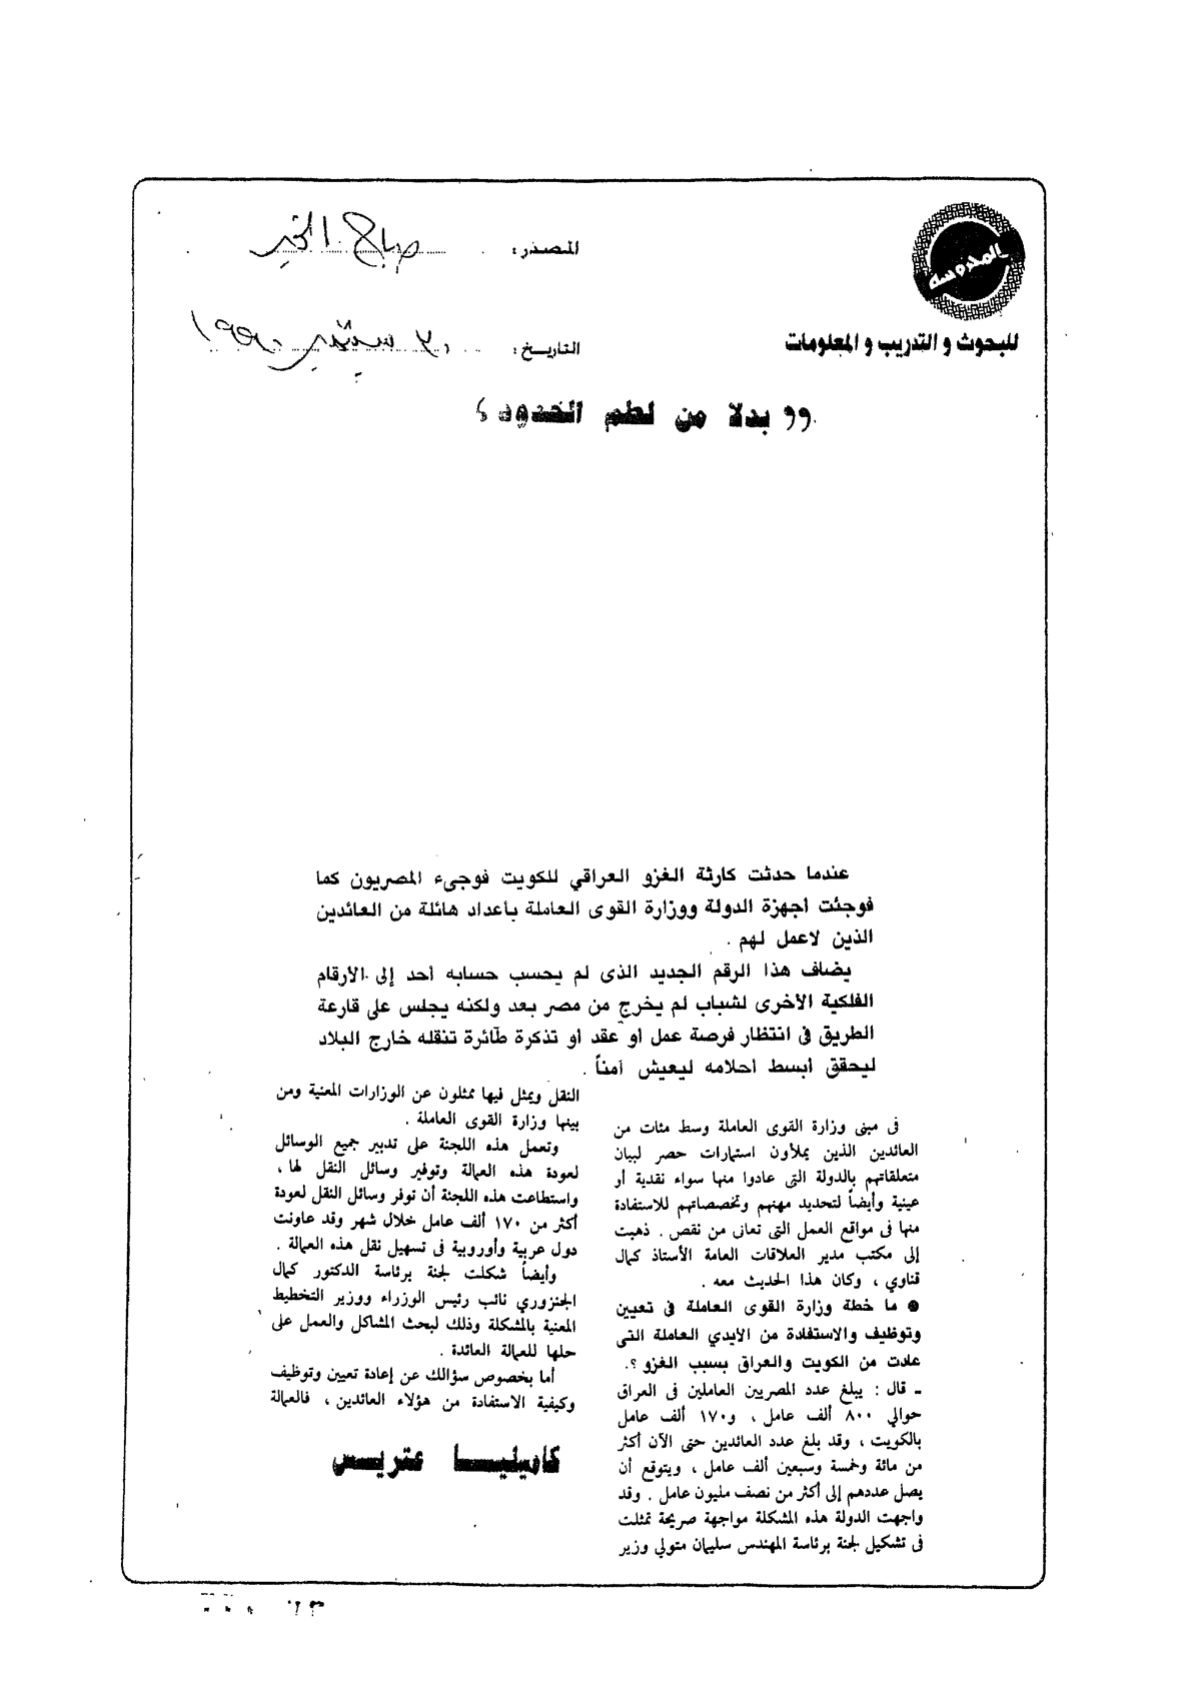 المحروسه
للبحوث و التدريب و المعلومات
المصدر : صباح الخير
التاريخ : ٢٠ سبتمبر ١٩٩٠
,, بدلا من لطم الخدود ؟
عندما حدثت كارثة الغزو العراقي للكويت فوجىء المصريون كما
فوجئت أجهزة الدولة ووزارة القوى العاملة بأعداد هائلة من العائدين
الذين لاعمل لهم .
يضاف هذا الرقم الجديد الذى لم يحسب حسابه أحد إلى الأرقام
الفلكية الأخرى لشباب لم يخرج من مصر بعد ولكنه يجلس على قارعة
الطريق فى انتظار فرصة عمل أو عقد أو تذكرة طائرة تنقله خارج البلاد
ليحقق أبسط أحلامه ليعيش آمناً .
فى مبنى وزارة القوى العاملة وسط مئات من
العائدين الذين يملأون استمارات حصر لبيان
متعلقاتهم بالدولة التى عادوا منها سواء نقدية أو
عينية وأيضاً لتحديد مهنهم وتخصصاتهم للاستفادة
منها فى مواقع العمل التى تعانى من نقص . ذهبت
إلى مكتب مدير العلاقات العامة الأستاذ كمال
قناوي ، وكان هذا الحديث معه .
● ما خطة وزارة القوى العاملة فى تعيين
وتوظيف والاستفادة من الأيدي العاملة التى
عادت من الكويت والعراق بسبب الغزو ؟.
ـ قال : يبلغ عدد المصريين العاملين فى العراق
حوالي ٨٠٠ ألف عامل ، و١٧٠ ألف عامل
بالكويت ، وقد بلغ عدد العائدين حتى الآن أكثر
من مائة وخمسة وسبعين ألف عامل ، ويتوقع أن
يصل عددهم إلى أكثر من نصف مليون عامل . وقد
واجهت الدولة هذه المشكلة مواجهة صريحة تمثلت
فى تشكيل لجنة برئاسة المهندس سليمان متولي وزير
النقل ويمثل فيها ممثلون عن الوزارات المعنية ومن
بينها وزارة القوى العاملة .
وتعمل هذه اللجنة على تدبير جميع الوسائل
لعودة هذه العمالة وتوفير وسائل النقل لها ،
واستطاعت هذه اللجنة أن توفر وسائل النقل لعودة
أكثر من ١٧٠ ألف عامل خلال شهر وقد عاونت
دول عربية وأوروبية فى تسهيل نقل هذه العمالة .
وأيضاً شكلت لجنة برئاسة الدكتور كمال
الجنزوري نائب رئيس الوزراء ووزير التخطيط
المعنية بالمشكلة وذلك لبحث المشاكل والعمل على
حلها للعمالة العائدة .
أما بخصوص سؤالك عن إعادة تعيين وتوظيف
وكيفية الاستفادة من هؤلاء العائدين ، فالعمالة
كاميليا عتريس